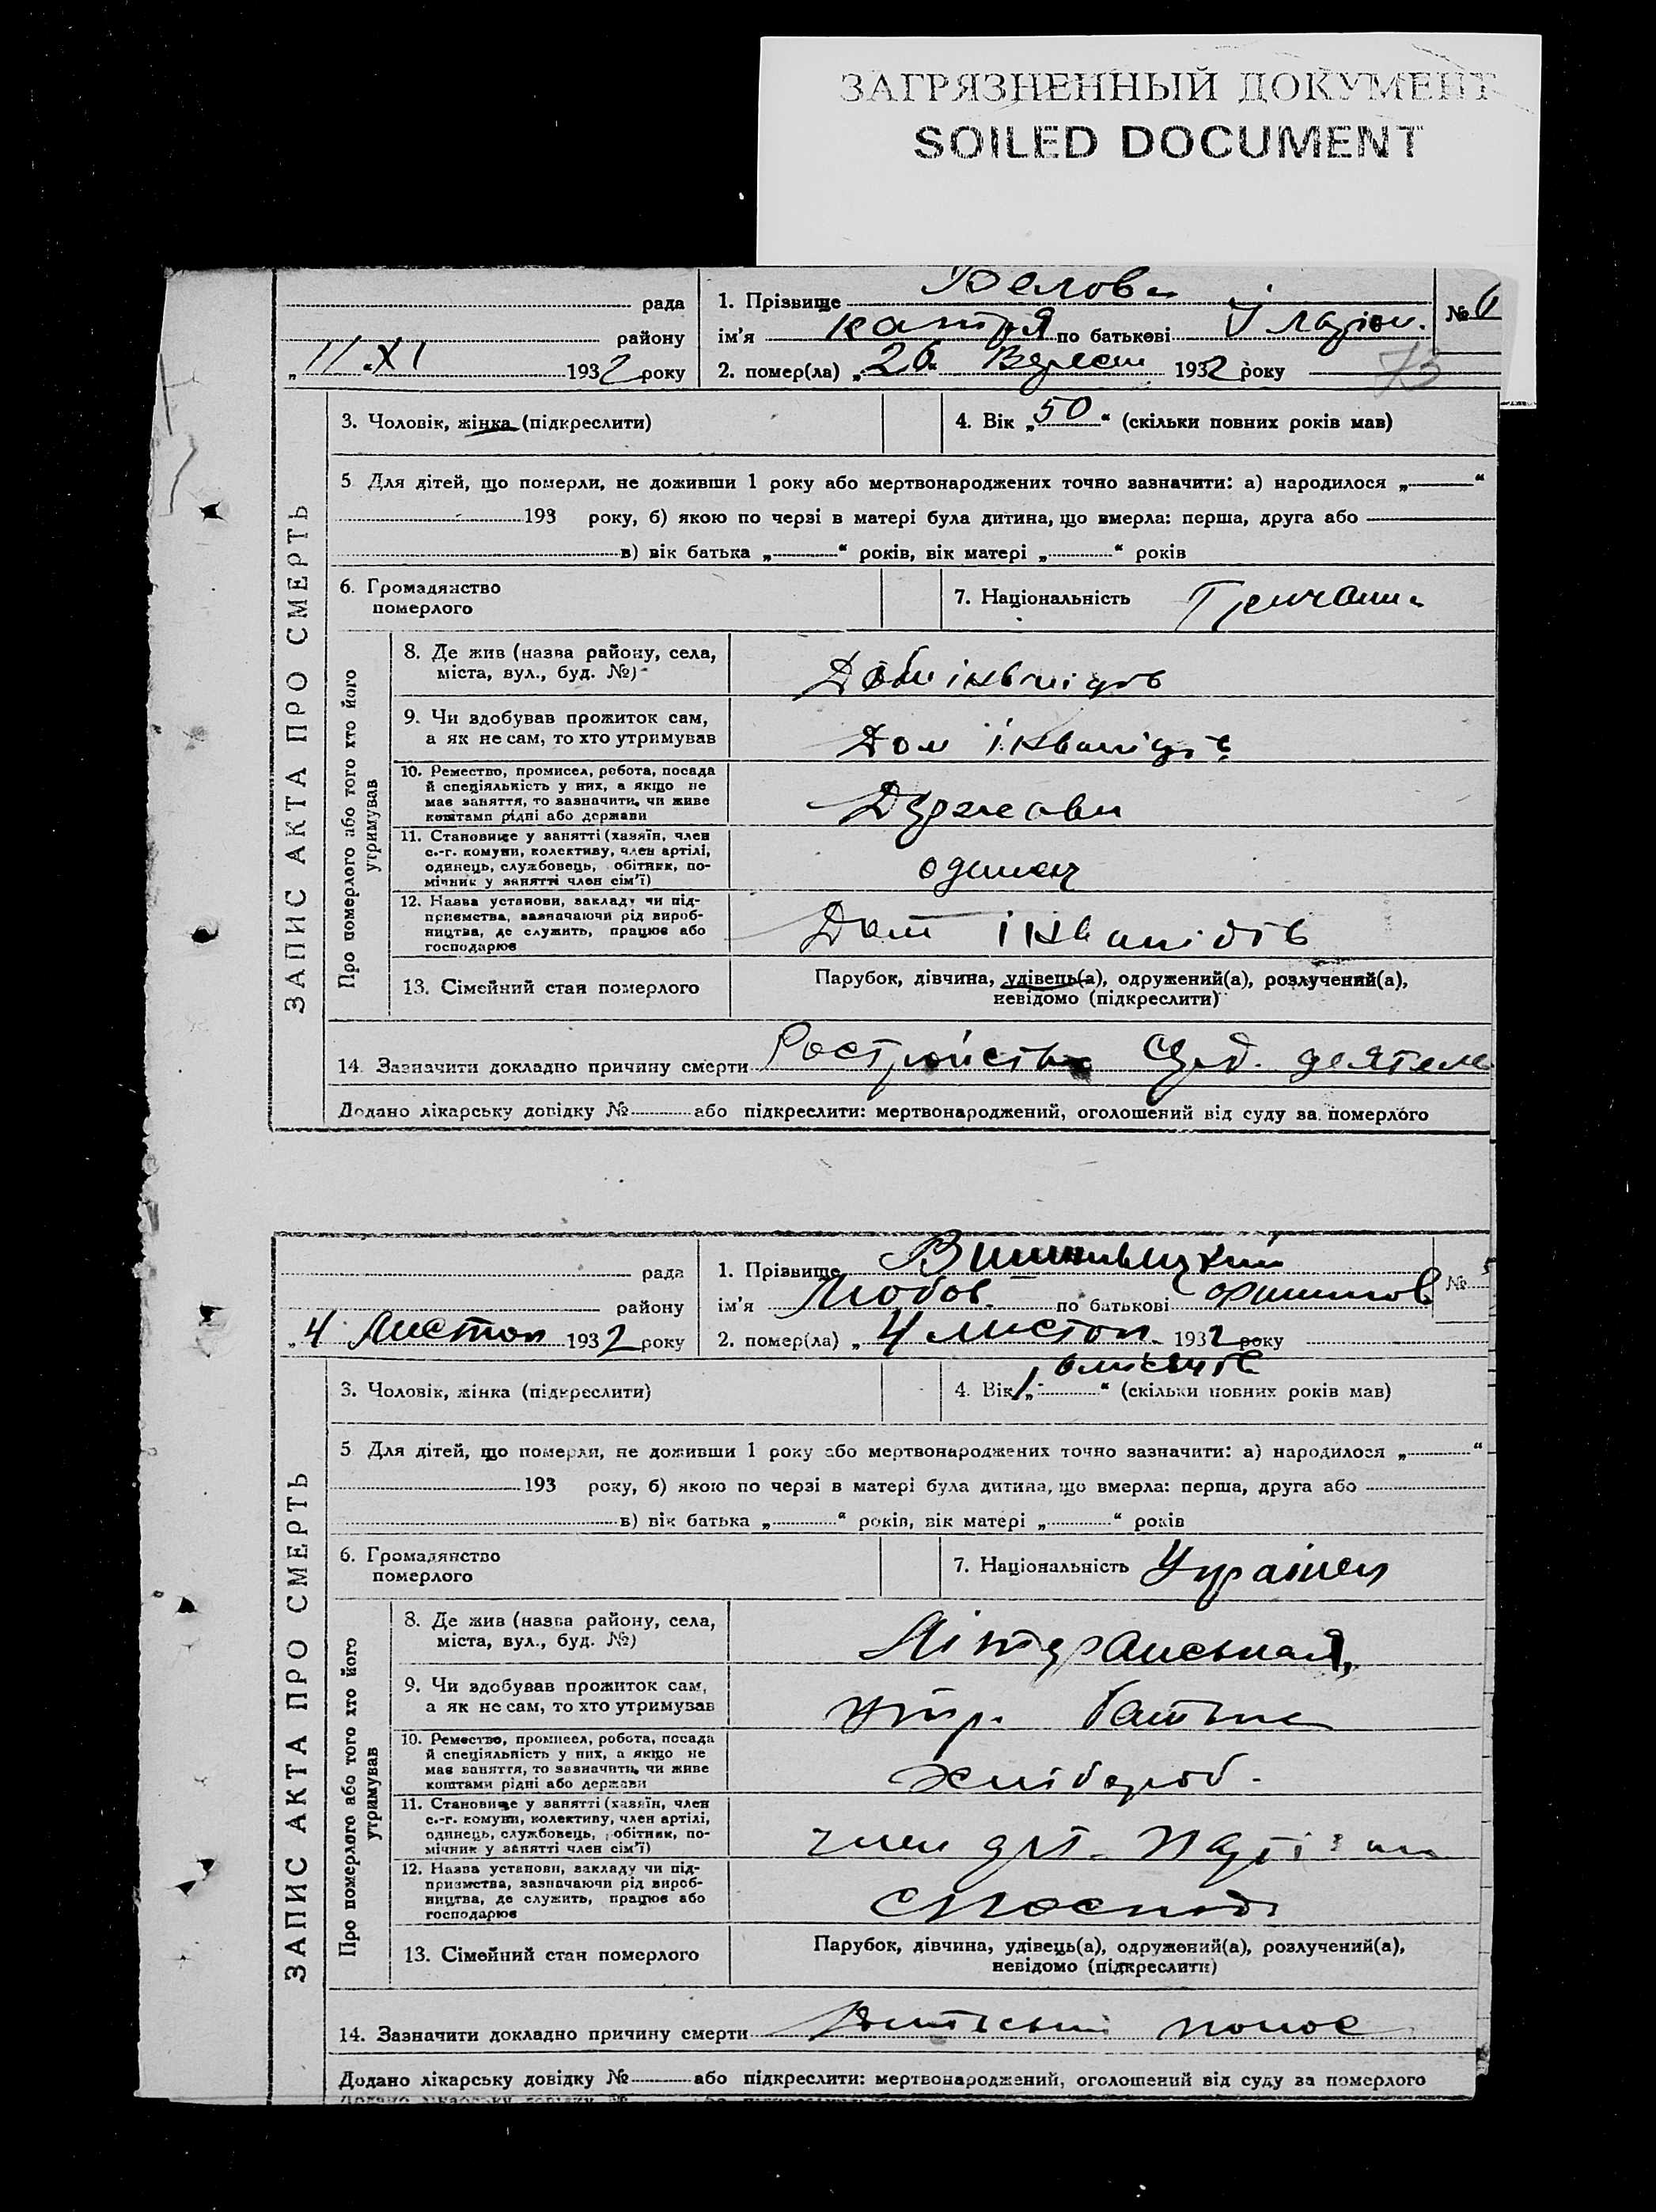 ЗАГРЯЗНЕННЫЙ ДОКУМЕНТ
SOILED DOCUMENT
рада
району
„11“ XI 1932 року
1. Прізвище Белова
ім'я по батькові
2. помер(ла) „26 Верест 1932 року
№ 6
73
ЗАПИС АКТА ПРО СМЕРТЬ
3. Чоловік, жінка (підкреслити)
4. Вік „50“ (скільки повних років мав)
5 Для дітей, що померли, не доживши 1 року або мертвонароджених точно зазначити: а) народилося „ “
193 року, б) якою по черзі в матері була дитина, що вмерла: перша, друга або
в) вік батька „ “ років, вік матері „ “ років
6. Громадянство
померлого
7. Національність Гречанка
Про померлого або того хто його
утримував
8. Де жив (назва району, села,
міста, вул., буд. №)
Дом інвалідів
9. Чи здобував прожиток сам,
а як не сам, то хто утримував
Дом інвалідів
10. Ремество, промисел, робота, посада
й спеціяльність у них, а якщо не
має заняття, то зазначити, чи живе
коштами рідні або держави
Держави
11. Становище у занятті (хазяїн, член
с.-г. комуни, колективу, член артілі,
одинець, службовець, обітник, по-
мічник у занятті член сім'ї)
одинец
12. Назва установи, закладу чи під-
приємства, зазначаючи рід вироб-
ництва, де служить, працює або
господарює
Дом інвалідів
13. Сімейний стан померлого
Парубок, дівчина, удівець(а), одружений(а), розлучений(а),
невідомо (підкреслити)
14. Зазначити докладно причину смертиРостройство Серд. деятель
Додано лікарську довідку № або підкреслити: мертвонароджений, оголошений від суду за померлого
рада
району
„4 Листоп 1932 року
1. Прізвище
ім'я Любов по батькові
2. помер(ла) „4 листоп 1932 року
№ 5
ЗАПИС АКТА ПРО СМЕРТЬ
3. Чоловік, жінка (підкреслити)
4. Вік „ “ місяців (скільки повних років мав)
5 Для дітей, що померли, не доживши 1 року або мертвонароджених точно зазначити: а) народилося „ “
193 року, б) якою по черзі в матері була дитина, що вмерла: перша, друга або
в) вік батька „ “ років, вік матері „ “ років
6. Громадянство
померлого
7. Національність
Про померлого або того хто його
утримував
8. Де жив (назва району, села,
міста, вул., буд. №)
9. Чи здобував прожиток сам,
а як не сам, то хто утримував
утр. батько
10. Ремество, промисел, робота, посада
й спеціяльність у них, а якщо не
має заняття, то зазначити, чи живе
коштами рідні або держави
хлібороб.
11. Становище у занятті (хазяїн, член
с.-г. комуни, колективу, член артілі,
одинець, службовець, обітник, по-
мічник у занятті член сім'ї)
член арт.
12. Назва установи, закладу чи під-
приємства, зазначаючи рід вироб-
ництва, де служить, працює або
господарює
13. Сімейний стан померлого
Парубок, дівчина, удівець(а), одружений(а), розлучений(а),
невідомо (підкреслити)
14. Зазначити докладно причину смерти понос
Додано лікарську довідку № або підкреслити: мертвонароджений, оголошений від суду за померлого